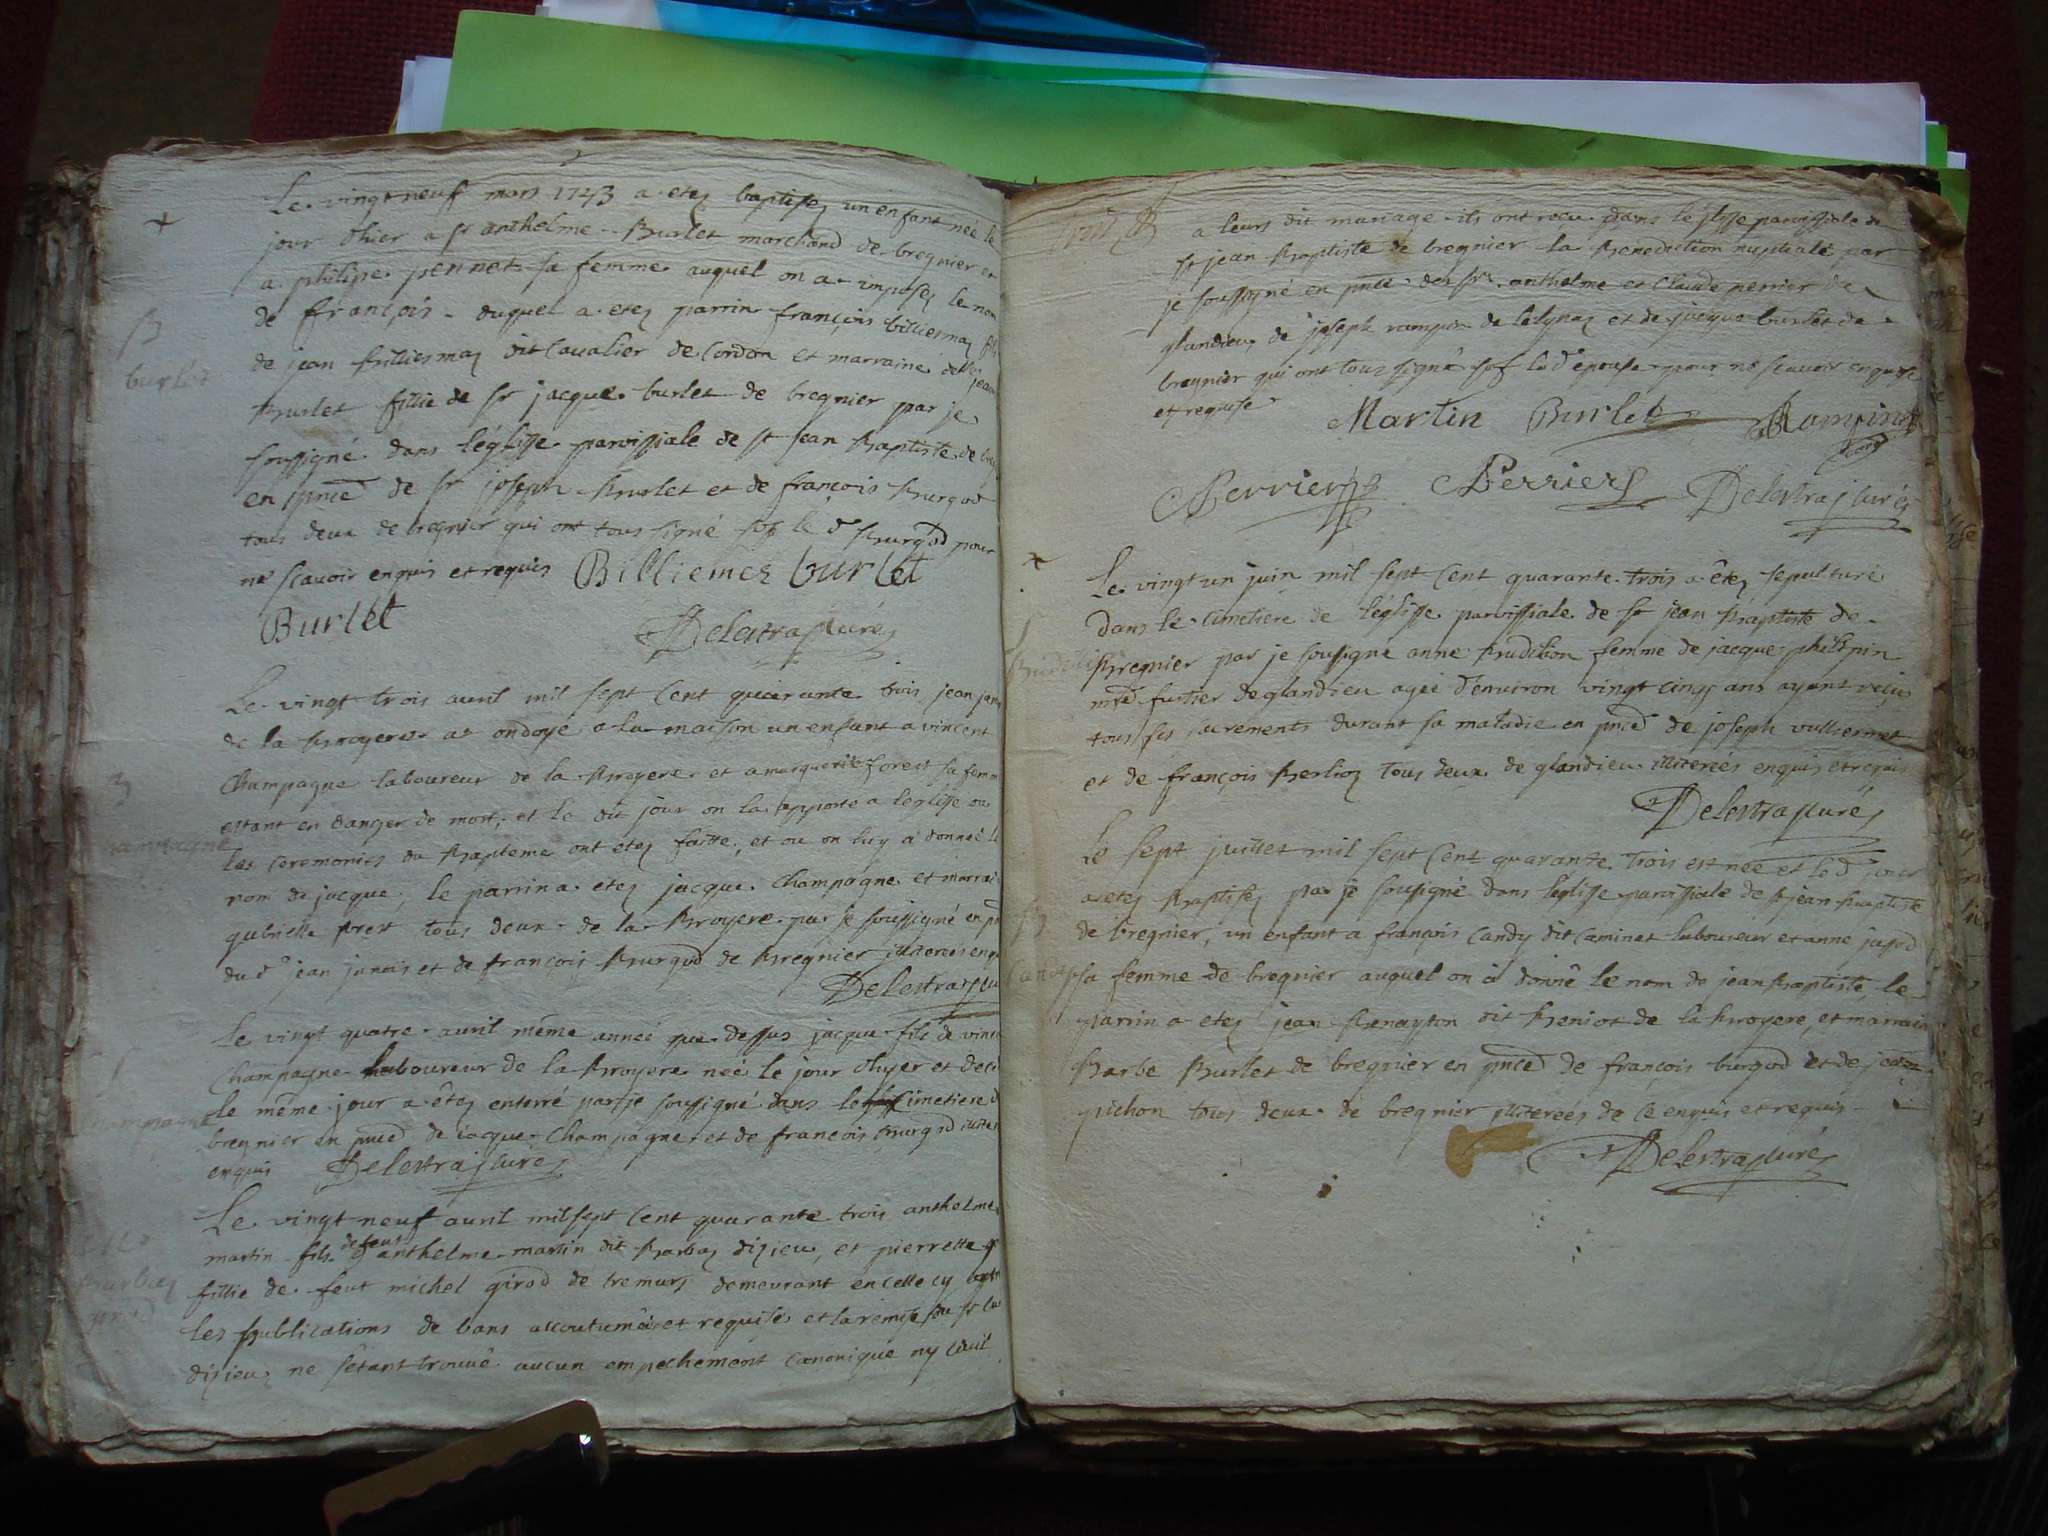 Le vingt neuf mars 1743 a etez baptisez un enfant née le
jour dhier a sr anthelme Burlet marchand de bregnier et
a philipe pernet sa femme auquel on a imposez le nom
de françois duquel a etez parrin françois billiemaz fils
de jean billiemaz dit Cavalier de Cordon et marraine
Burlet fillie de sr jacque burlet de bregnier par je
soussigné dans léglisse paroissiale de st jean Baptiste de
en pnce de sr joseph Burlet et de françois Burgod
tous deux de bregnier qui ont tous signé sof le d Burgod pour
ne scavoir enquis et requis Billiemez burlet
Burlet Delestra curéz
Le vingt trois avril mil sept Cent quarante trois jean
de la Broyere at ondoyé a la maison un enfant a vincent
Champagne laboureur de la Broyere et a marguerite forest sa femme
estant en danger de mort, et le dit jour on la apporté a leglise ou
les ceremonies du Bapteme ont etez faitte, et ou on luy a donné le
nom de jacque, le parrin a etez jacque Champagne et marrai
gabrielle prost tous deux de la Broyere par je soussigné en
du d jean et de françois Burgod de Bregnier illiterées
Delestra
Le vingt quatre avril même année que dessus jacque fils de
Champagne laboureur de la Broyere née le jour dhyer et
le même jour a êtez enterré par je soussigné dans le Cimetiere d
bregnier en pnce de jacque Champagne et de francois Burgod
enquis Delestra curéz
Le vingt neuf avril mil sept Cent quarante trois anthelme
martin fils de feut anthelme martin dit Barbaz dizieu, et pierrette
fillie de feut michel girod de tremurs demeurant en celle cy
les publications de bans accoutumée et requise et la remise
dizieu, ne sétant trouvé aucun empechement canonique ny Civil
a leurs dit mariage ils ont recu dans léglisse paroissiale de
st jean Baptiste de bregnier la Benediction nuptiale par
je soussigné en pnce des srs anthelme et Claude perrier de
glandieu, de joseph rampin de et de jacque burlet de
bregnier qui ont tous signé sof la d epouse pour ne scavoir enquise
et requise
Martin Burlet Rampin
Perrier Perrier Delestra curéz
Le vingt un juin mil sept Cent quarante trois a êtez sepulturé
dans le cimetiere de léglisse paroissiale de st jean Baptiste de
Bregnier par je sousigné anne Budillion femme de jacque philipin
md fustier de glandieu agée d'environ vingt cinq ans ayant reçu
tous ses sacrements durant sa maladie en pnce de joseph vulliermet
et de françois Berlioz tous deux de glandieu illiterées enquis et requis
Delestra curéz
Le sept juillet mil sept Cent quarante trois est née et le d jour
a etez Baptisez par je sousigné dans leglisse paroissiale de st jean Baptiste
de bregnier, un enfant a françois Candy dit Caminet laboureur et anne
sa femme de bregnier auquel on a donné le nom de jean Baptiste, le
parrin a etez jean dit Beniot de la Broyere, et marraine
Barbe Burlet de bregnier en pnce de françois burgod et de jean
pichon tous deux de bregnier illiterees de ce enquis et requis
Delestra curéz